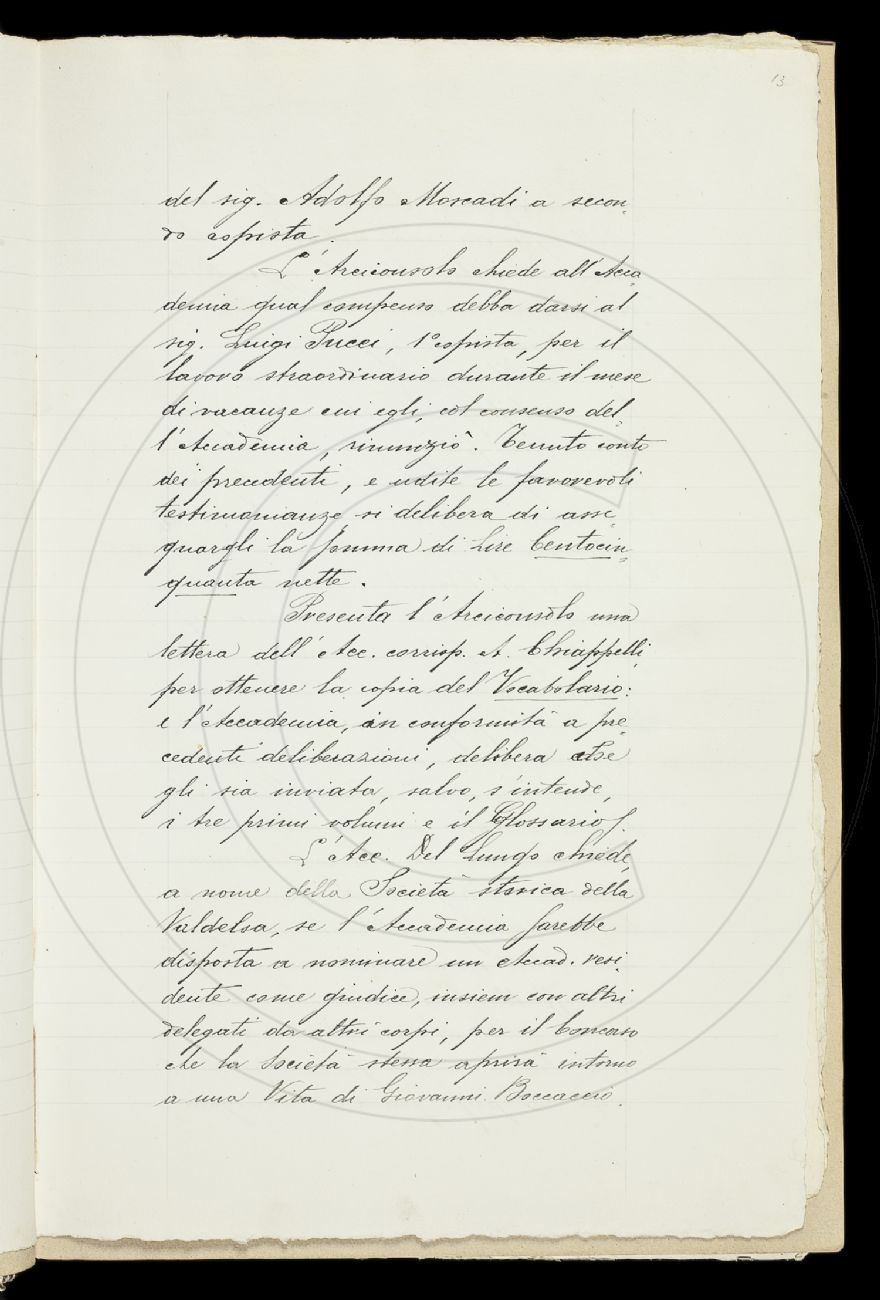 13
del sig. Adolfo Moscadi a secon-
do copista.
L'Arciconsolo chiede all'Acca-
demia qual compenso debba darsi al
sig. Luigi Pucci, 1º copista, per il
lavoro straordinario durante il mese
di vacanze cui egli, col consenso del-
l'Accademia, rinunziò. Tenuto conto
dei precedenti, e udite le favorevoli
testimonianze, si delibera di asse-
gnargli la somma di Lire Centocin-
quanta nette.
Presenta l'Arciconsolo una
lettera dell'Acc. corrisp. A. Chiappelli
per ottenere la copia del Vocabolario:
e l'Accademia, in conformità a pre-
cedenti deliberazioni, delibera che
gli sia inviata, salvo, s'intende,
i tre primi volumi e il Glossario.
L'Acc. Del Lungo chiede,
a nome della Società storica della
Valdelsa, se l'Accademia sarebbe
disposta a nominare un Accad. resi-
dente come giudice, insiem con altri
delegati da altri corpi, per il Concorso
che la Società stessa aprirà intorno
a una Vita di Giovanni Boccaccio.